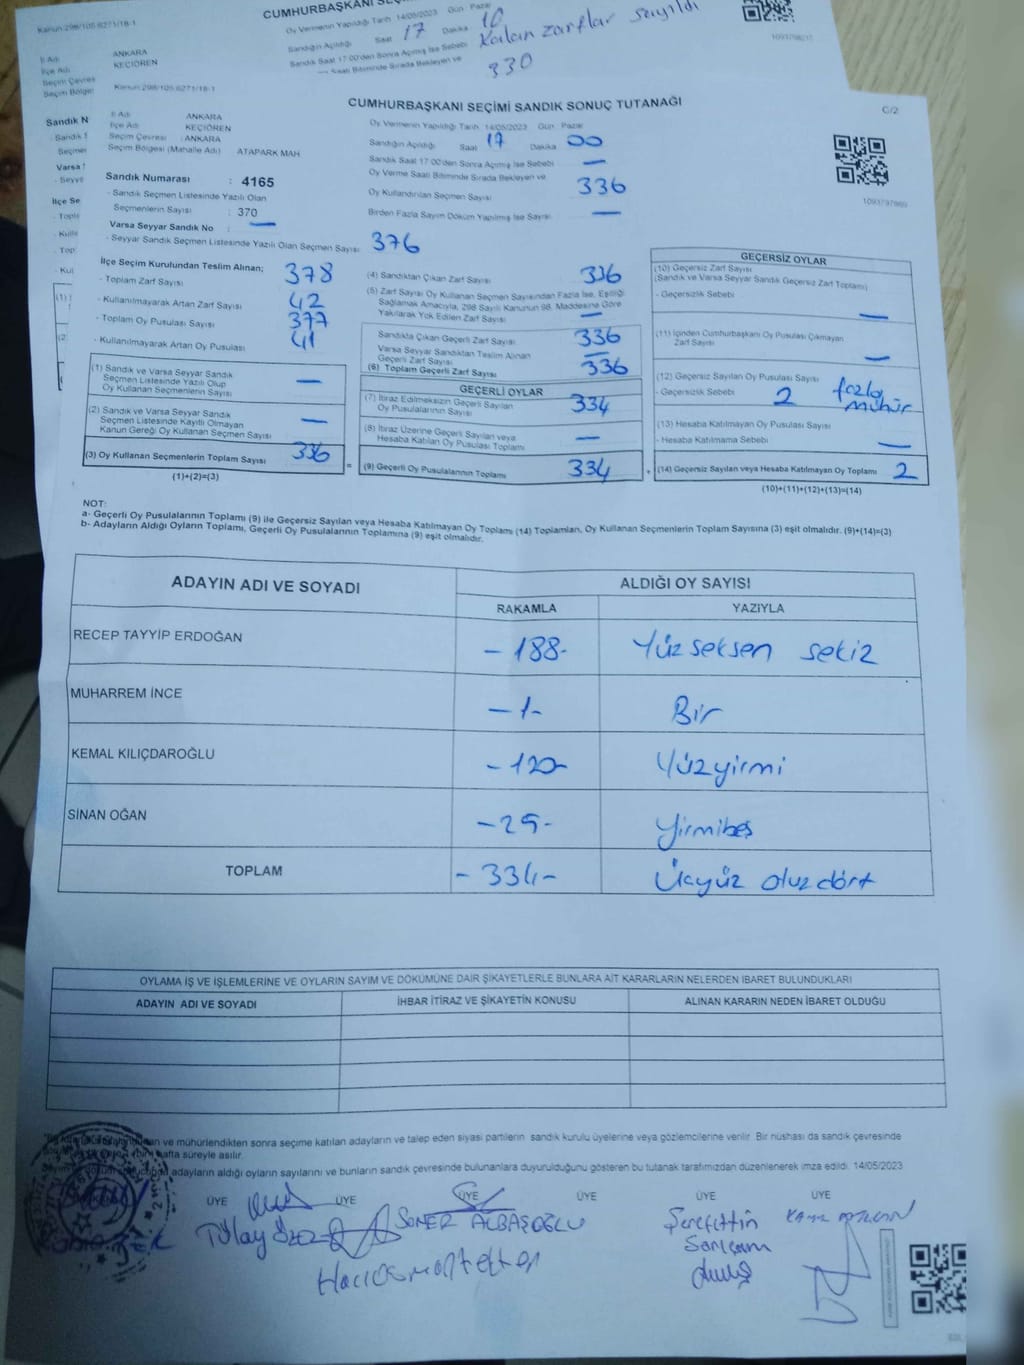 Kanun:298/105.6271/18-1
CUMHURBAŞKANI SEÇ
Oy Vermenin Yapıldığı Tarih 14/05/2023 Gün Pazar
Sandığın Açıldığı Saat 17 Dakika 10
Sandık Saat 17:00'den Sonra Açılmış İse Sebebi
Saati Bitiminde Sırada Bekleyen ve
Kalan zarflar sayıldı
330
İl Adı ANKARA
İlçe Adı KEÇİÖREN
Seçim Çevres
Seçim Bölges
Sandık N
Kanun:298/105.6271/18-1
CUMHURBAŞKANI SEÇİMİ SANDIK SONUÇ TUTANAĞI
C/2
İl Adı ANKARA
İlçe Adı KEÇİÖREN
Seçim Çevresi : ANKARA
Seçim Bölgesi (Mahalle Adı) ATAPARK MAH
Sandık Numarası : 4165
- Sandık Seçmen Listesinde Yazılı Olan
Seçmenlerin Sayısı : 370
Varsa Seyyar Sandık No : —
- Seyyar Sandık Seçmen Listesinde Yazılı Olan Seçmen Sayısı 376
Oy Vermenin Yapıldığı Tarih 14/05/2023 Gün Pazar
Sandığın Açıldığı Saat 17 Dakika 00
Sandık Saat 17:00'den Sonra Açılmış İse Sebebi —
Oy Verme Saati Bitiminde Sırada Bekleyen ve
Oy Kullandırılan Seçmen Sayısı 336
Birden Fazla Sayım Döküm Yapılmış İse Sayısı —
İlçe Seçim Kurulundan Teslim Alınan;
- Toplam Zarf Sayısı 378
- Kullanılmayarak Artan Zarf Sayısı 42
- Toplam Oy Pusulası Sayısı 377
- Kullanılmayarak Artan Oy Pusulası 41
(1) Sandık ve Varsa Seyyar Sandık
Seçmen Listesinde Yazılı Olup
Oy Kullanan Seçmenlerin Sayısı —
(2) Sandık ve Varsa Seyyar Sandık
Seçmen Listesinde Kayıtlı Olmayan
Kanun Gereği Oy Kullanan Seçmen Sayısı —
(3) Oy Kullanan Seçmenlerin Toplam Sayısı 336
(1)+(2)=(3)
(4) Sandıktan Çıkan Zarf Sayısı 336
(5) Zarf Sayısı Oy Kullanan Seçmen Sayısından Fazla İse, Eşitliği
Sağlamak Amacıyla, 298 Sayılı Kanunun 98. Maddesine Göre
Yakılarak Yok Edilen Zarf Sayısı —
Sandıkta Çıkan Geçerli Zarf Sayısı 336
Varsa Seyyar Sandıktan Teslim Alınan
Geçerli Zarf Sayısı —
(6) Toplam Geçerli Zarf Sayısı 336
GEÇERLİ OYLAR
(7) İtiraz Edilmeksizin Geçerli Sayılan
Oy Pusulalarının Sayısı 334
(8) İtiraz Üzerine Geçerli Sayılan veya
Hesaba Katılan Oy Pusulası Toplamı —
(9) Geçerli Oy Pusulalarının Toplamı 334
GEÇERSİZ OYLAR
(10) Geçersiz Zarf Sayısı
(Sandık ve Varsa Seyyar Sandık Geçersiz Zarf Toplamı)
- Geçersizlik Sebebi —
(11) İçinden Cumhurbaşkanı Oy Pusulası Çıkmayan
Zarf Sayısı —
(12) Geçersiz Sayılan Oy Pusulası Sayısı
- Geçersizlik Sebebi 2 fazla mühür
(13) Hesaba Katılmayan Oy Pusulası Sayısı
- Hesaba Katılmama Sebebi —
(14) Geçersiz Sayılan veya Hesaba Katılmayan Oy Toplamı 2
(10)+(11)+(12)+(13)=(14)
NOT:
a- Geçerli Oy Pusulalarının Toplamı (9) ile Geçersiz Sayılan veya Hesaba Katılmayan Oy Toplamı (14) Toplamları, Oy Kullanan Seçmenlerin Toplam Sayısına (3) eşit olmalıdır. (9)+(14)=(3)
b- Adayların Aldığı Oyların Toplamı, Geçerli Oy Pusulalarının Toplamına (9) eşit olmalıdır.
ADAYIN ADI VE SOYADI ALDIĞI OY SAYISI
RAKAMLA YAZIYLA
RECEP TAYYİP ERDOĞAN -188- Yüz seksen sekiz
MUHARREM İNCE -1- Bir
KEMAL KILIÇDAROĞLU -120- Yüzyirmi
SİNAN OĞAN -25- Yirmibeş
TOPLAM -334- Üçyüz otuzdört
OYLAMA İŞ VE İŞLEMLERİNE VE OYLARIN SAYIM VE DÖKÜMÜNE DAİR ŞİKAYETLERLE BUNLARA AİT KARARLARIN NELERDEN İBARET BULUNDUKLARI
ADAYIN ADI VE SOYADI İHBAR İTİRAZ VE ŞİKAYETİN KONUSU ALINAN KARARIN NEDEN İBARET OLDUĞU
ve mühürlendikten sonra seçime katılan adayların ve talep eden siyasi partilerin sandık kurulu üyelerine veya gözlemcilerine verilir. Bir nüshası da sandık çevresinde
hafta süreyle asılır.
adayların aldığı oyların sayılarını ve bunların sandık çevresinde bulunanlara duyurulduğunu gösteren bu tutanak tarafımızdan düzenlenerek imza edildi. 14/05/2023
ÜYE ÜYE ÜYE ÜYE ÜYE ÜYE
Tülay
SONER ALBAŞOĞLU
Şerefettin